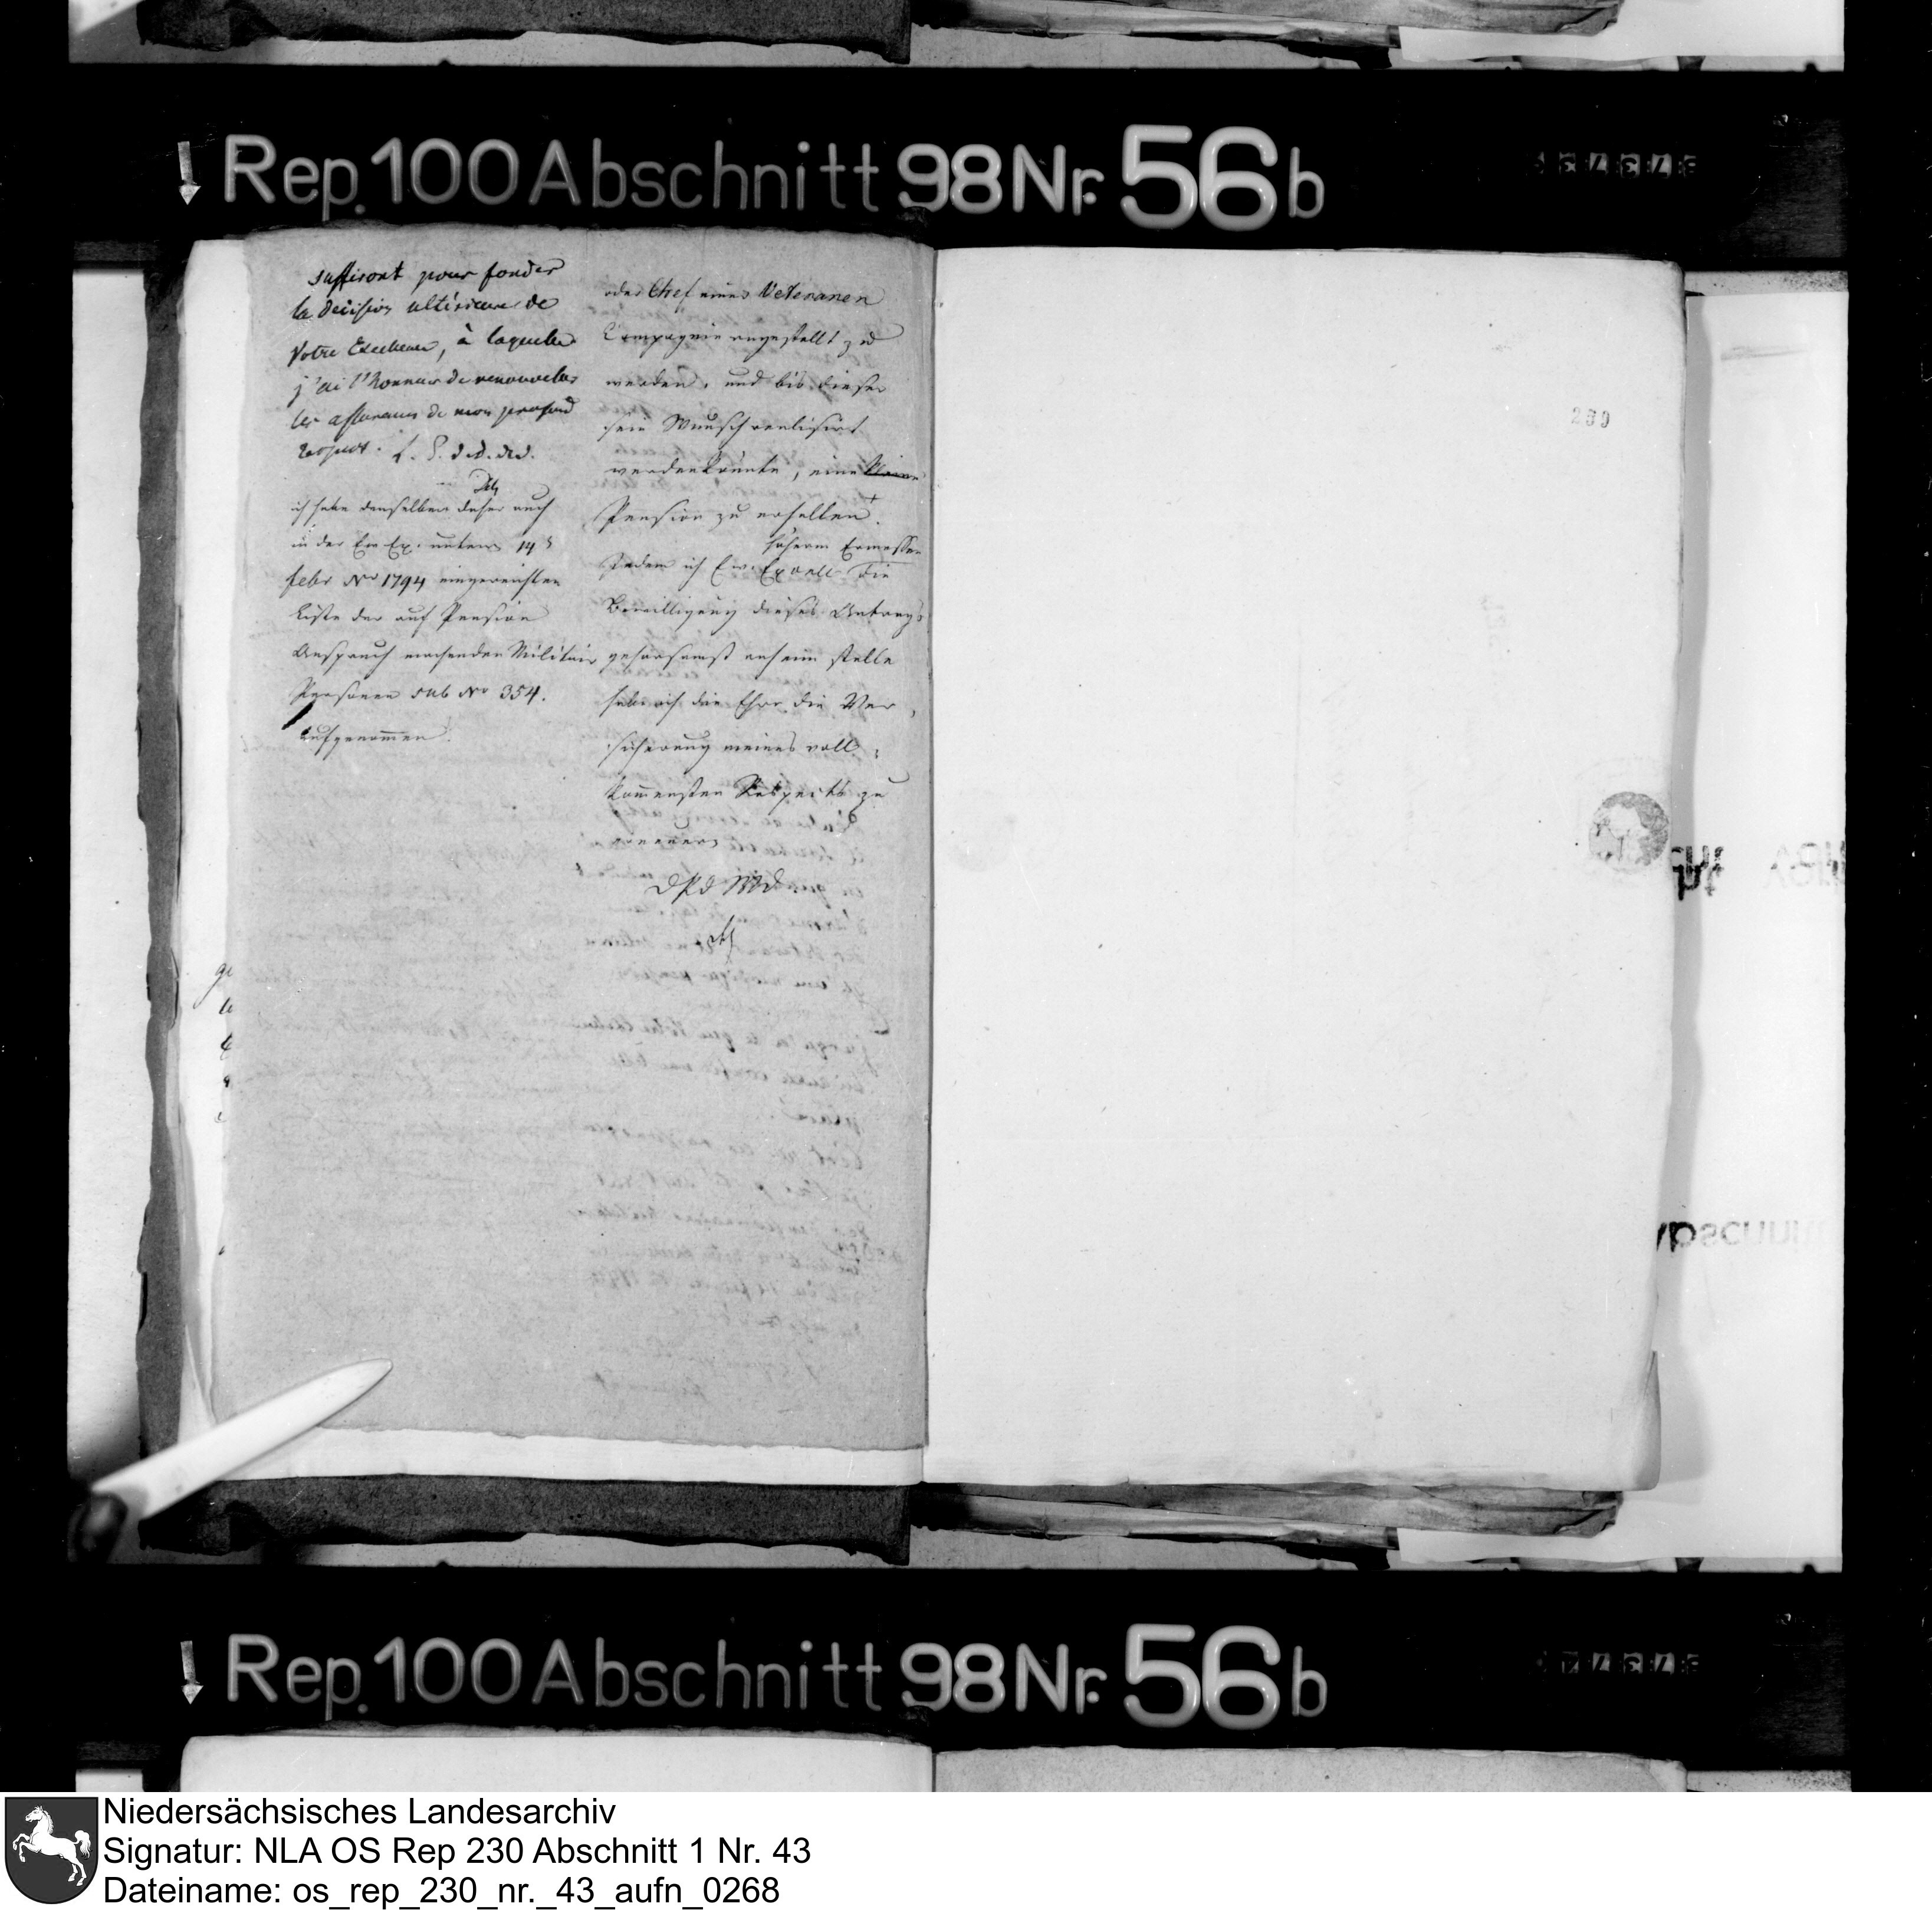 Rep. 100 Abschnitt 98 Nr. 56 b
suffiront pour fonder
la décision ultérieure de
Votre Excellence, à laquelle
j'ai l'honneur de renouveler
les assurances de mon profond
respect. L. P. d. d. d. d.
ich habe denselben daher auch
in der Ew. Ex. unterm 14 t
febr No 1794 eingereichten
Liste der auf Pension
Anspruch machenden Militair
Personen sub No 354.
aufgenommen.
oder Chef einer Veteranen
Compagnie angestellt zu
werden, und bis dieser
sein Wunsch realisirt
werden könnte, eine kleine
Pension zu erhalten.
höherm Ermessen
Indem ich Ew. Excell die
Bewilligung dieses Antrags
gehorsamst anheim stelle
habe ich die Ehre die Ver
sicherung meines voll
kommensten Respects zu
erneuern
D P d M d.
239
Rep. 100 Abschnitt 98 Nr. 56 b
Niedersächsisches Landesarchiv
Signatur: NLA OS Rep 230 Abschnitt 1 Nr. 43
Dateiname: os_rep_230_nr._43_aufn_0268